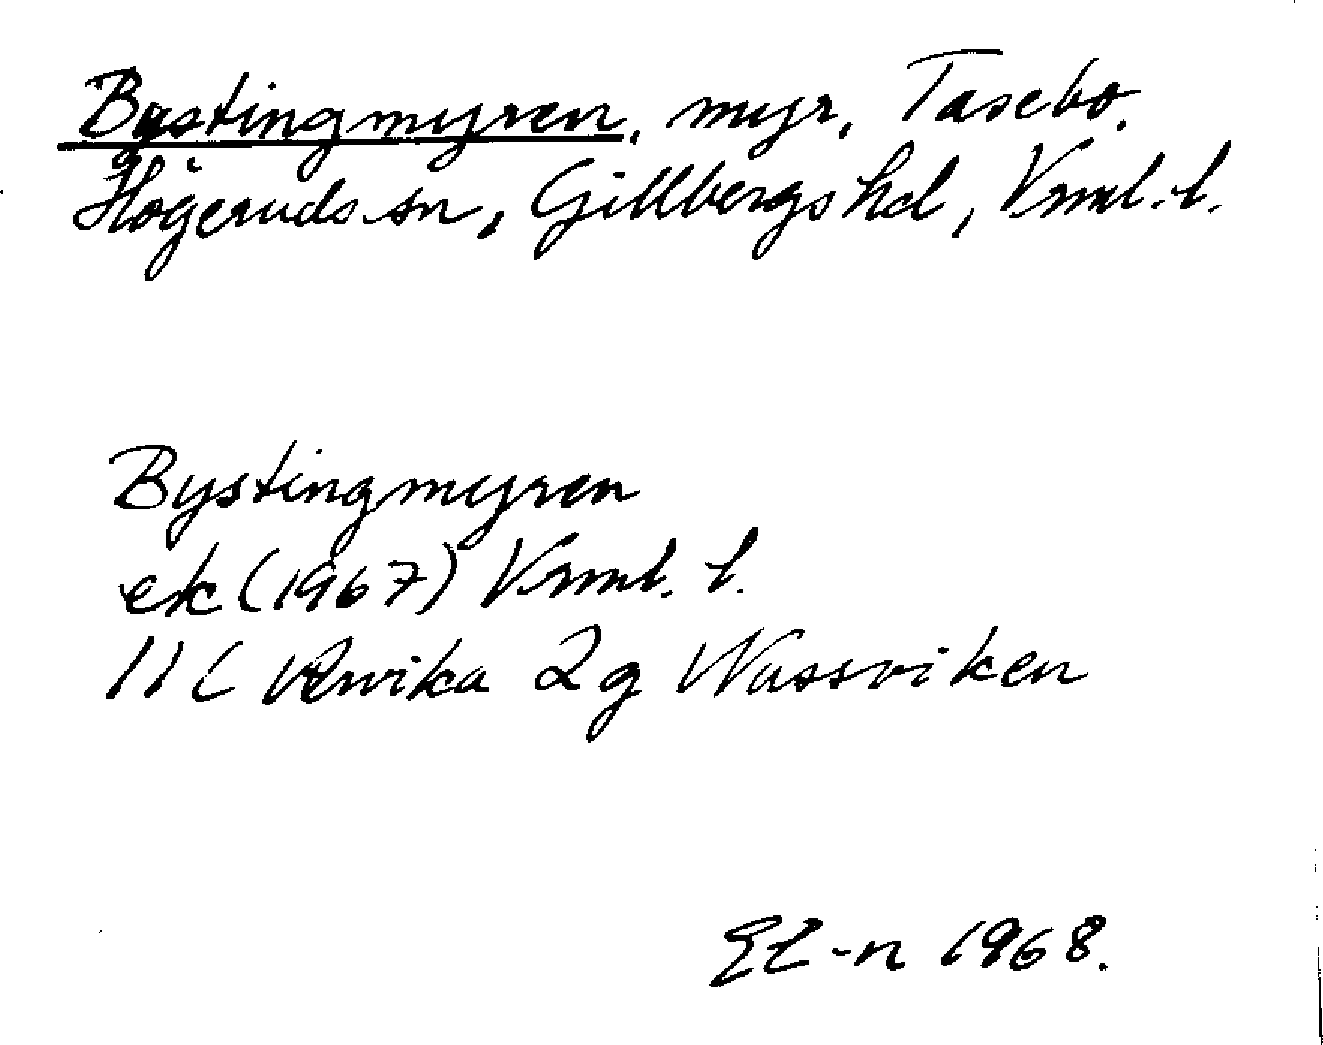 Bystingmyren, myr, Tasebo.
Högeruds sn, Gillbergs hd, Vrml. l.
Bystingmyren
ek (1967) Vrml. l.
11 C Arvika 2 g Nussviken
El-n 1968.